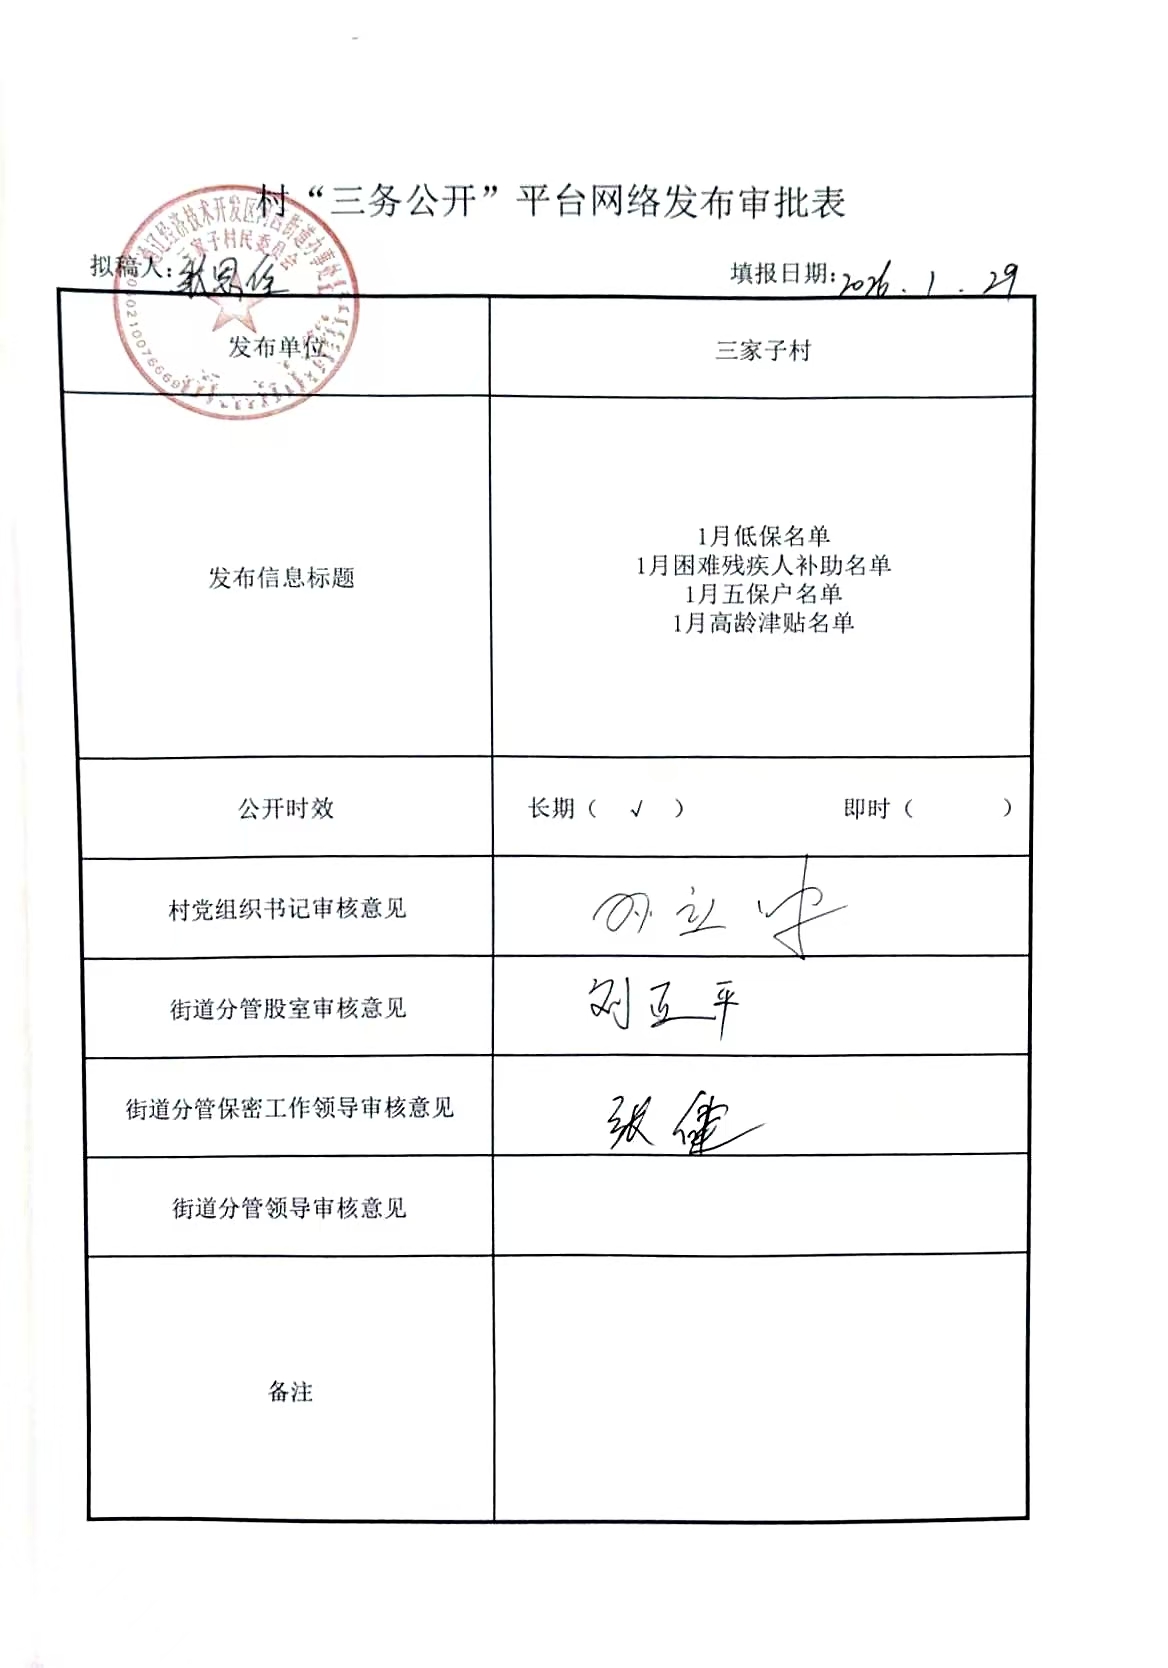 村“三务公开”平台网络发布审批表
通辽经济技术开发区河西街道办事处
三家子村民委员会
拟稿人:
填报日期:2026.1.29
发布单位 三家子村
发布信息标题
1月低保名单
1月困难残疾人补助名单
1月五保户名单
1月高龄津贴名单
公开时效 长期（ √ ） 即时（ ）
村党组织书记审核意见
街道分管股室审核意见 刘亚平
街道分管保密工作领导审核意见 张健
街道分管领导审核意见
备注